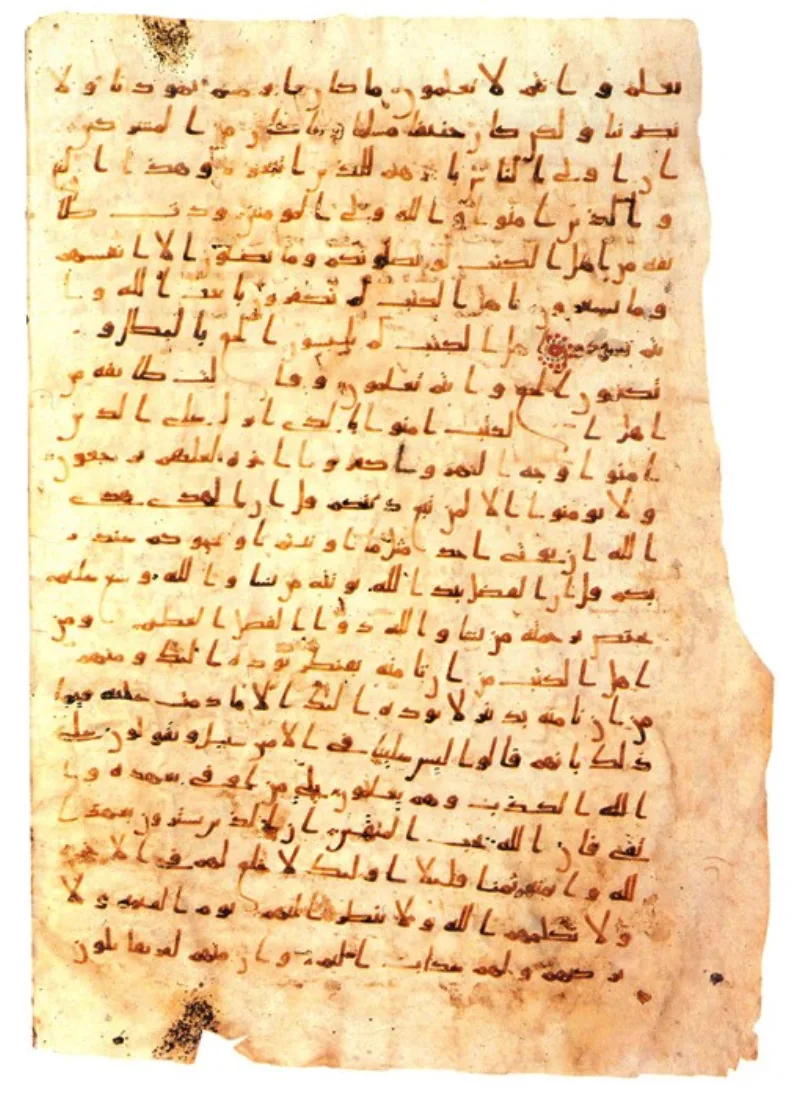 يعلم وانتم لا تعلمون ما كان ابرهيم يهوديا ولا
نصرنيا ولكن كان حنيفا مسلما وما كان من المشركين
ان اولى الناس بابرهيم للذين اتبعوه وهذا النبي
والذين امنوا والله ولي المومنين ودت طا
يفة من اهل الكتب لو يضلونكم وما يضلون الا انفسهم
وما يشعرون ياهل الكتب لم تكفرون بايت الله وا
نتم تشهدون ياهل الكتب لم تلبسون الحق بالبطل و
تكتمون الحق وانتم تعلمون وقالت طايفة من
اهل الكتب امنوا بالذي انزل على الذين
امنوا وجه النهر واكفروا اخره لعلهم يرجعون
ولا تومنوا الا لمن تبع دينكم قل ان الهدى هدى
الله ان يوتى احد مثل ما اوتيتم او يحجوكم عند ر
بكم قل ان الفضل بيد الله يوتيه من يشا والله وسع عليم
يختص برحمته من يشا والله ذو الفضل العظيم ومن
اهل الكتب من ان تامنه بقنطر يوده اليك ومنهم
من ان تامنه بدينر لا يوده اليك الا ما دمت عليه قيما
ذلك بانهم قالوا ليس علينا في الامين سبيل ويقولون على
الله الكذب وهم يعلمون بلى من اوفى بعهده وا
تقى فان الله يحب المتقين ان الذين يشترون بعهد ا
لله وايمنهم ثمنا قليلا اوليك لا خلق لهم في الاخرة
ولا يكلمهم الله ولا ينظر اليهم يوم القيمة ولا
يزكيهم ولهم عذاب اليم وان منهم لفريقا يلون